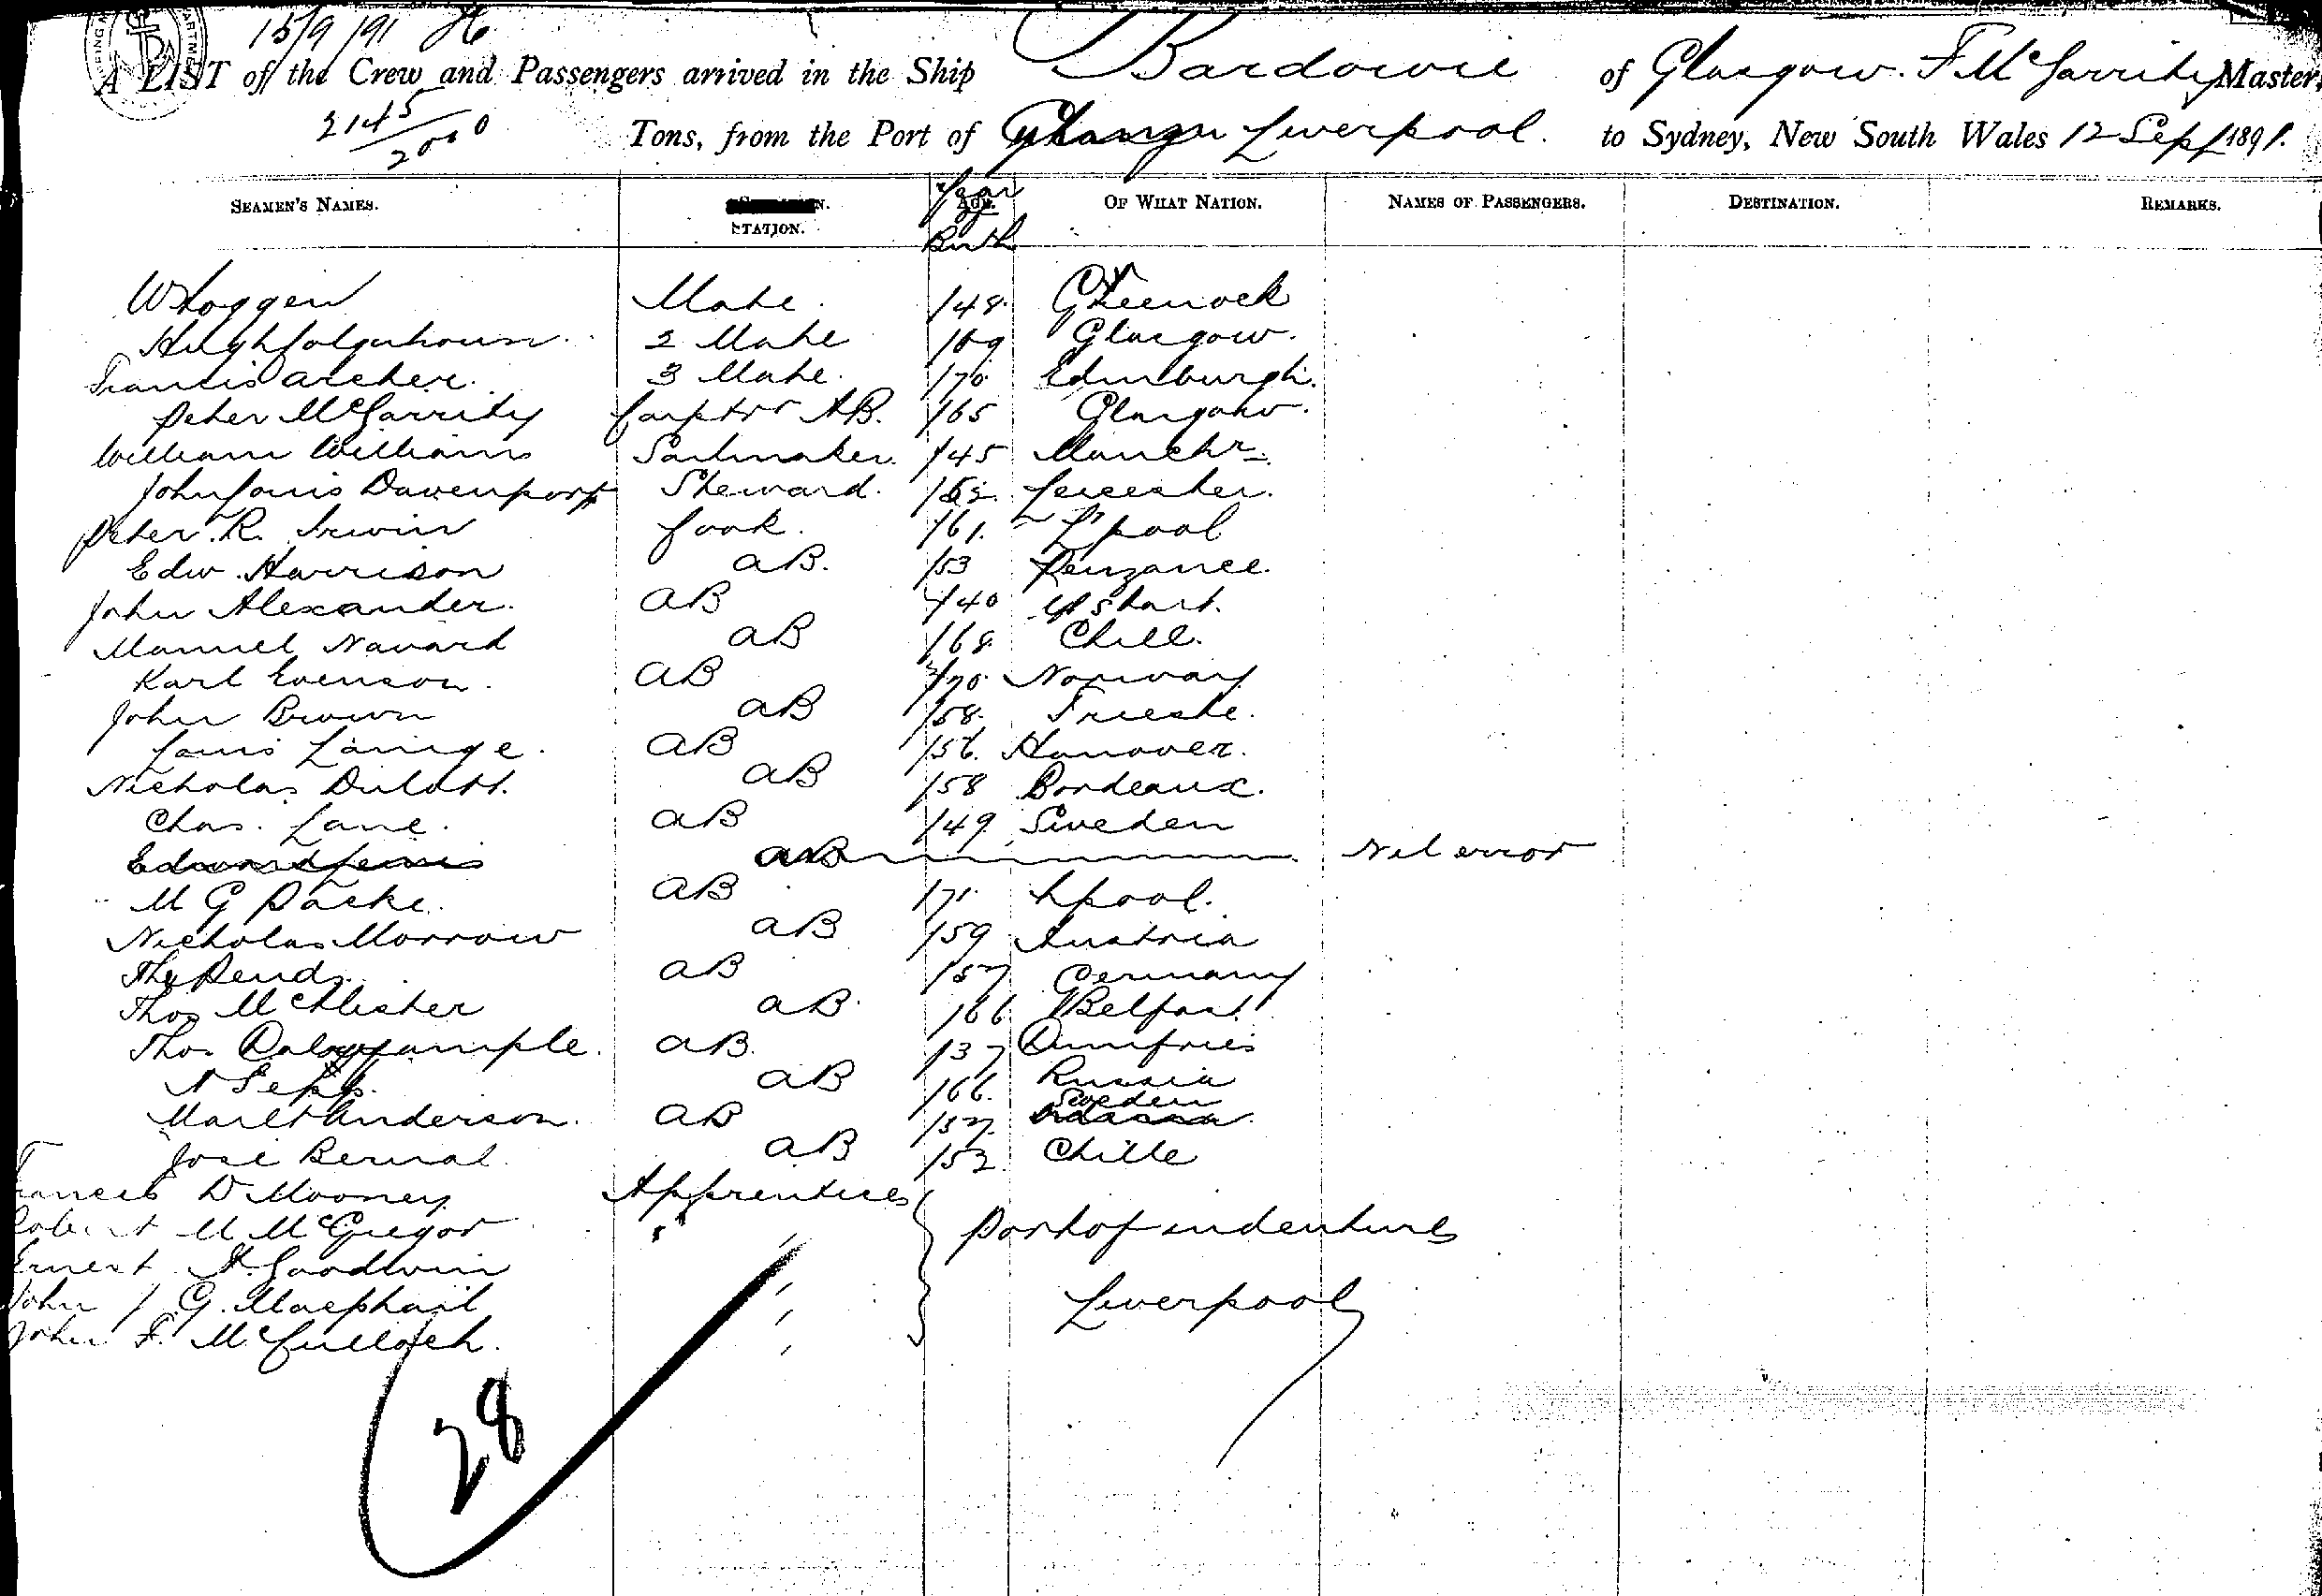 15/9/91
A LIST of the Crew and Passengers arrived in the Ship Bardowie of Glasgow. F McGarrity Master,
2145/2000 Tons, from the Port of Liverpool. to Sydney, New South Wales 12 Sept 1891.
SEAMEN'S NAMES. STATION. Year Birth OF WHAT NATION. NAMES OF PASSENGERS. DESTINATION. REMARKS.
Mate. /48. Greenock
Hugh Colquhoun. 2 Mate /69 Glasgow.
Francis Archer. 3 Mate. /70. Edinburgh.
Peter McGarrity Carptr AB. /65 Glasgow.
William Williams Sailmaker. /45 Manchr.
John Louis Davenport Steward. Leicester.
Peter. R. Irwin Cook. /61. L'pool
Edw. Harrison aB. /53 Penzance.
John Alexander. aB /40
Manuel Navard aB /68. Chili.
Karl Evenson. aB /70. Norway
John Brown aB /58. Trieste.
Louis aB /56. Hanover.
Nicholas aB /58 Bordeaux.
Chas. Lane. aB /49. Sweden
Edward Lewis aB Nil error
M G Packe. aB /71. Lpool.
Nicholas Morrow aB /59 Austria
aB /57 Germany
Thos McAlister aB. /66. Belfast
Thos. aB. /37 Dumfries
aB /66. Russia
Anderson. aB /57. Sweden
José Bernal. aB /52. Chille
Francis D Mooney Apprentices
Robert M McGregor " Port of indentures
Ernest A. Goodwin "
John J. G. Macphail " Liverpool
John F. McCulloch. "
28